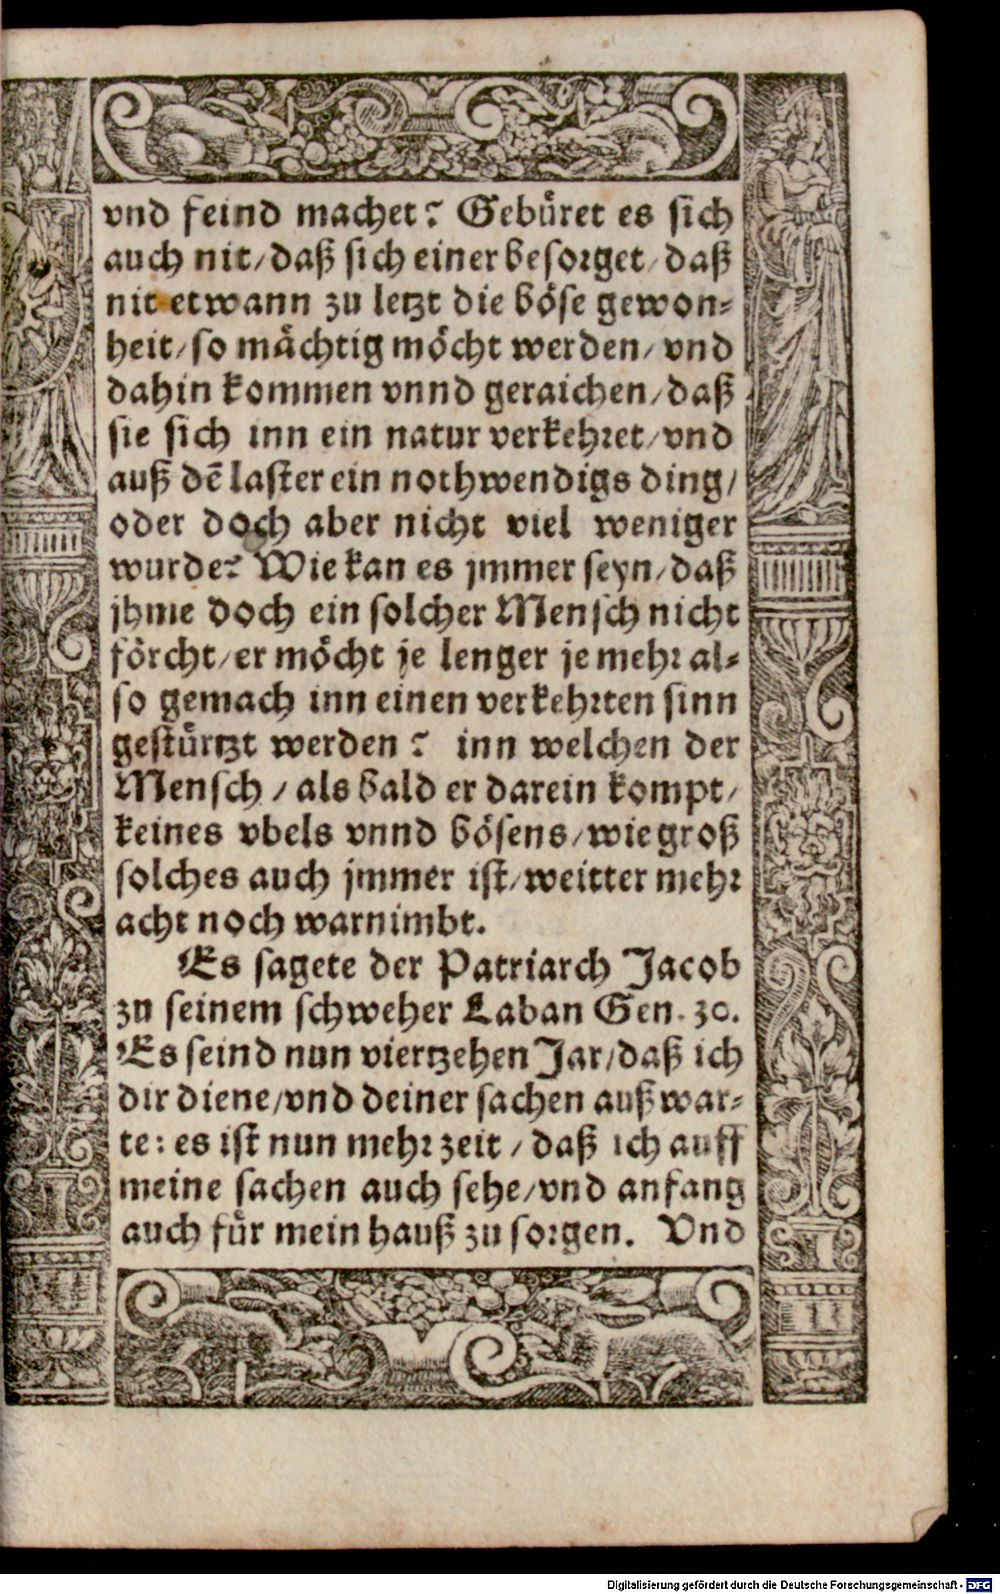 vnd feind machet? Gebüret es sich
auch nit/ daß sich einer besorget/ daß
nit etwann zu letzt die böse gewon-
heit/ so mächtig möcht werden/ vnd
dahin kommen vnnd geraichen/ daß
sie sich inn ein natur verkehret/ vnd
auß dē laster ein nothwendigs ding/
oder doch aber nicht viel weniger
wurde? Wie kan es jmmer seyn/ daß
jhme doch ein solcher Mensch nicht
förcht/ er möcht je lenger je mehr al-
so gemach inn einen verkehrten sinn
gestürtzt werden? inn welchen der
Mensch / als bald er darein kompt/
keines vbels vnnd bösens/ wie groß
solches auch jmmer ist/ weitter mehr
acht noch warnimbt.
Es sagete der Patriarch Jacob
zu seinem schweher Laban Gen. 30.
Es seind nun viertzehen Jar/ daß ich
dir diene/ vnd deiner sachen außwar-
te: es ist nun mehr zeit / daß ich auff
meine sachen auch sehe/ vnd anfang
auch für mein hauß zu sorgen. Vnd
Digitalisierung gefördert durch die Deutsche Forschungsgemeinschaft - DFG